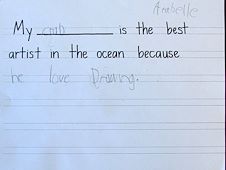 Arabelle
My crab is the best
artist in the ocean because
he love Drawing.